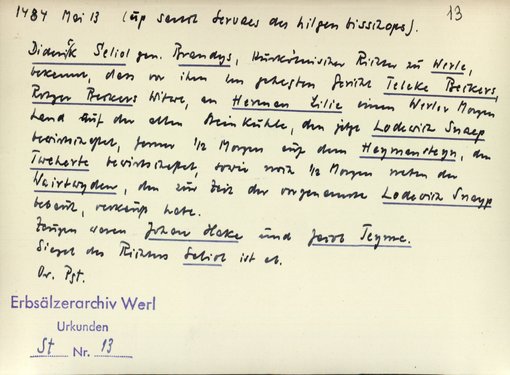 1484 Mai 13 (up sente Servaes des hilgen bisschops).
13
Diderik Seliol gen. Brandys, Kurkölnischer Richter zu Werle,
bekennt, dass vor ihm im gehegten Gericht Teleke Beckers,
Rotger Beckers Witwe, an Herman Lilie einen Werler Morgen
Land auf der alten Steinkuhle, den jetzt Lodewich Snaep
bewirtschaftet, ferner 1/2 Morgen auf dem Heymensteyn, den
Tweherte bewirtschaftet, sowie noch 1/2 Morgen neben der
Wairtwyden, den zur Zeit der vorgenannte Lodewich Snaype
bebaut, verkauft habe.
Zeugen waren Johan Hake und Jacob Teyme.
Siegel des Richters Seliol ist ab.
Or. Pgt.
Erbsälzerarchiv Werl
Urkunden
St Nr. 13